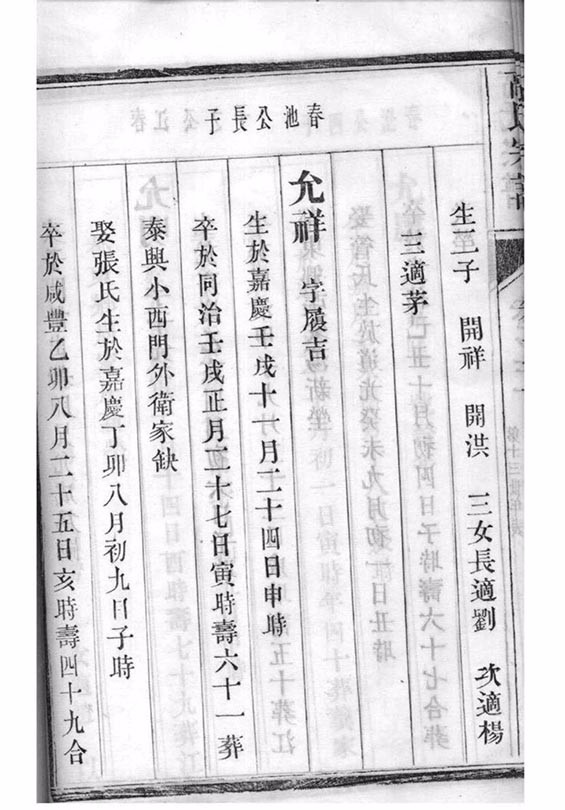 生二子 開祥 開洪 三女長適劉 次適楊
三適茅
春池公長子
允祥 字履吉
生於嘉慶壬戌十一月二十四日申時
卒於同治壬戌正月二十七日寅時壽六十一葬
泰興小西門外衛家缺
娶張氏生於嘉慶丁卯八月初九日子時
卒於咸豐乙卯八月二十五日亥時壽四十九合